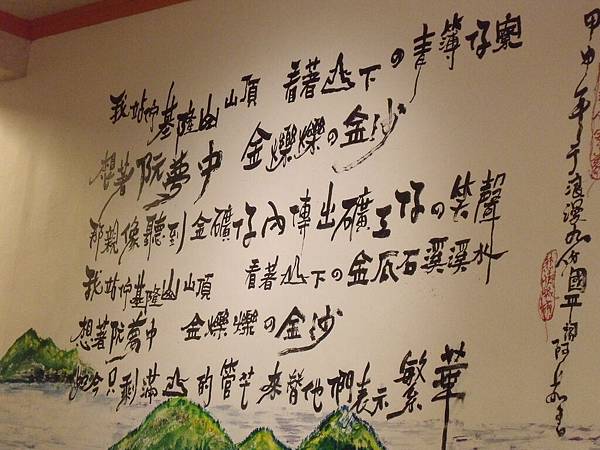 我站佇基隆山山頂　看著山下の青簿仔寮
想著阮夢中　金爍爍の金沙
那親像聽到金礦仔內傳出礦工仔の笑聲
我站佇基隆山山頂　看著山下の金瓜石溪溪水
想著阮夢中　金爍爍の金沙
如今只剩滿山的管芒來替他們表示繁華
甲申年于浪漫九份國平